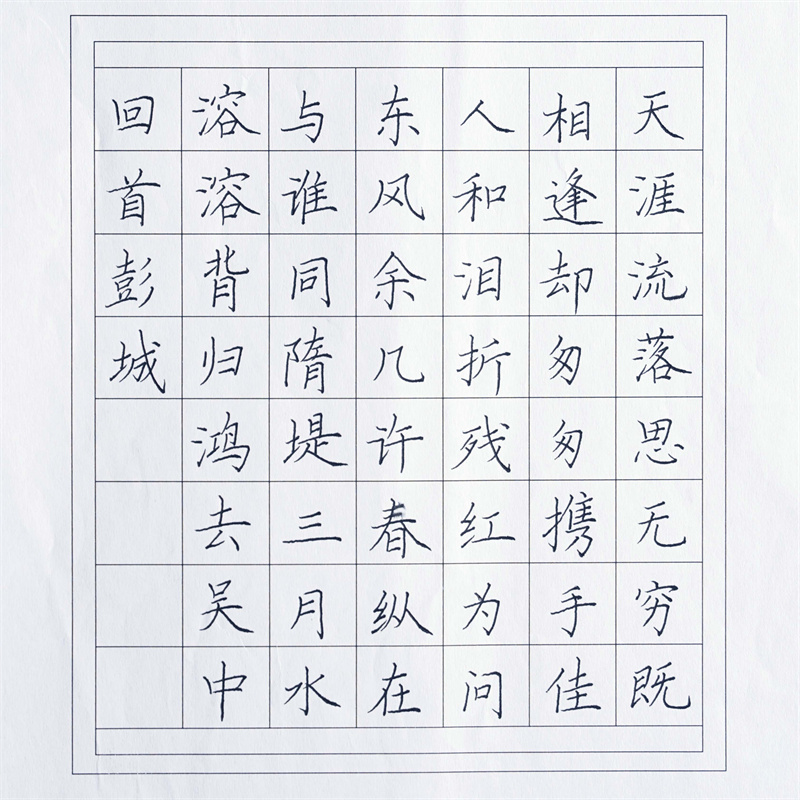 天涯流落思无穷既
相逢却匆匆携手佳
人和泪折残红为问
东风余几许春纵在
与谁同隋堤三月水
溶溶背归鸿去吴中
回首彭城